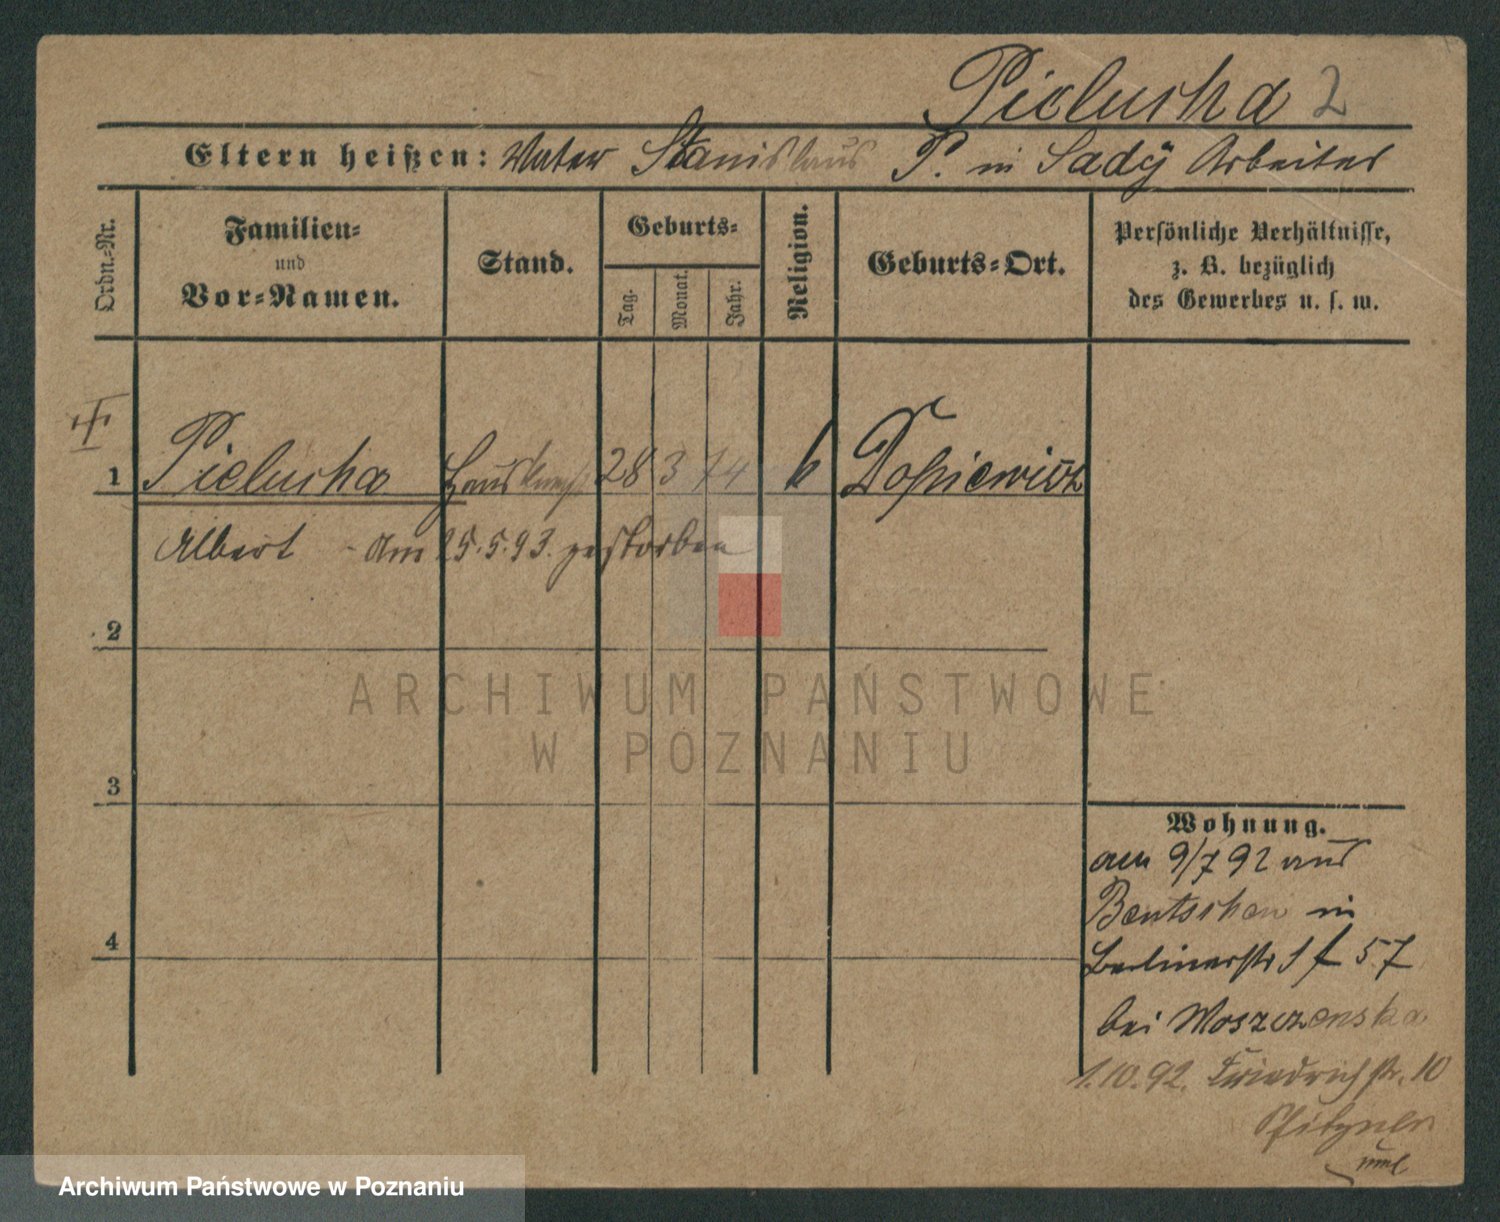 Pielucha 2
Eltern heißen: Vater Stanislaus P. in Sady Arbeiter
Ordn.-Nr.
Familien-
und
Vor-Namen.
Stand.
Geburts-
Tag.
Monat.
Jahr.
Religion.
Geburts-Ort.
Persönliche Verhältnisse,
z. B. bezüglich
des Gewerbes u. s. w.
1 Pielucha Hausknecht 28 3 74 k Dopiewicz
Albert - am 25.5.93. gestorben
2
3
4
Wohnung.
am 9/7 92 aus
Bentschen in
Berlinerstr 57
bei Moszczenska
1.10.92. Friedrichstr. 10
Pfitzner
ARCHIWUM PAŃSTWOWE
W POZNANIU
Archiwum Państwowe w Poznaniu